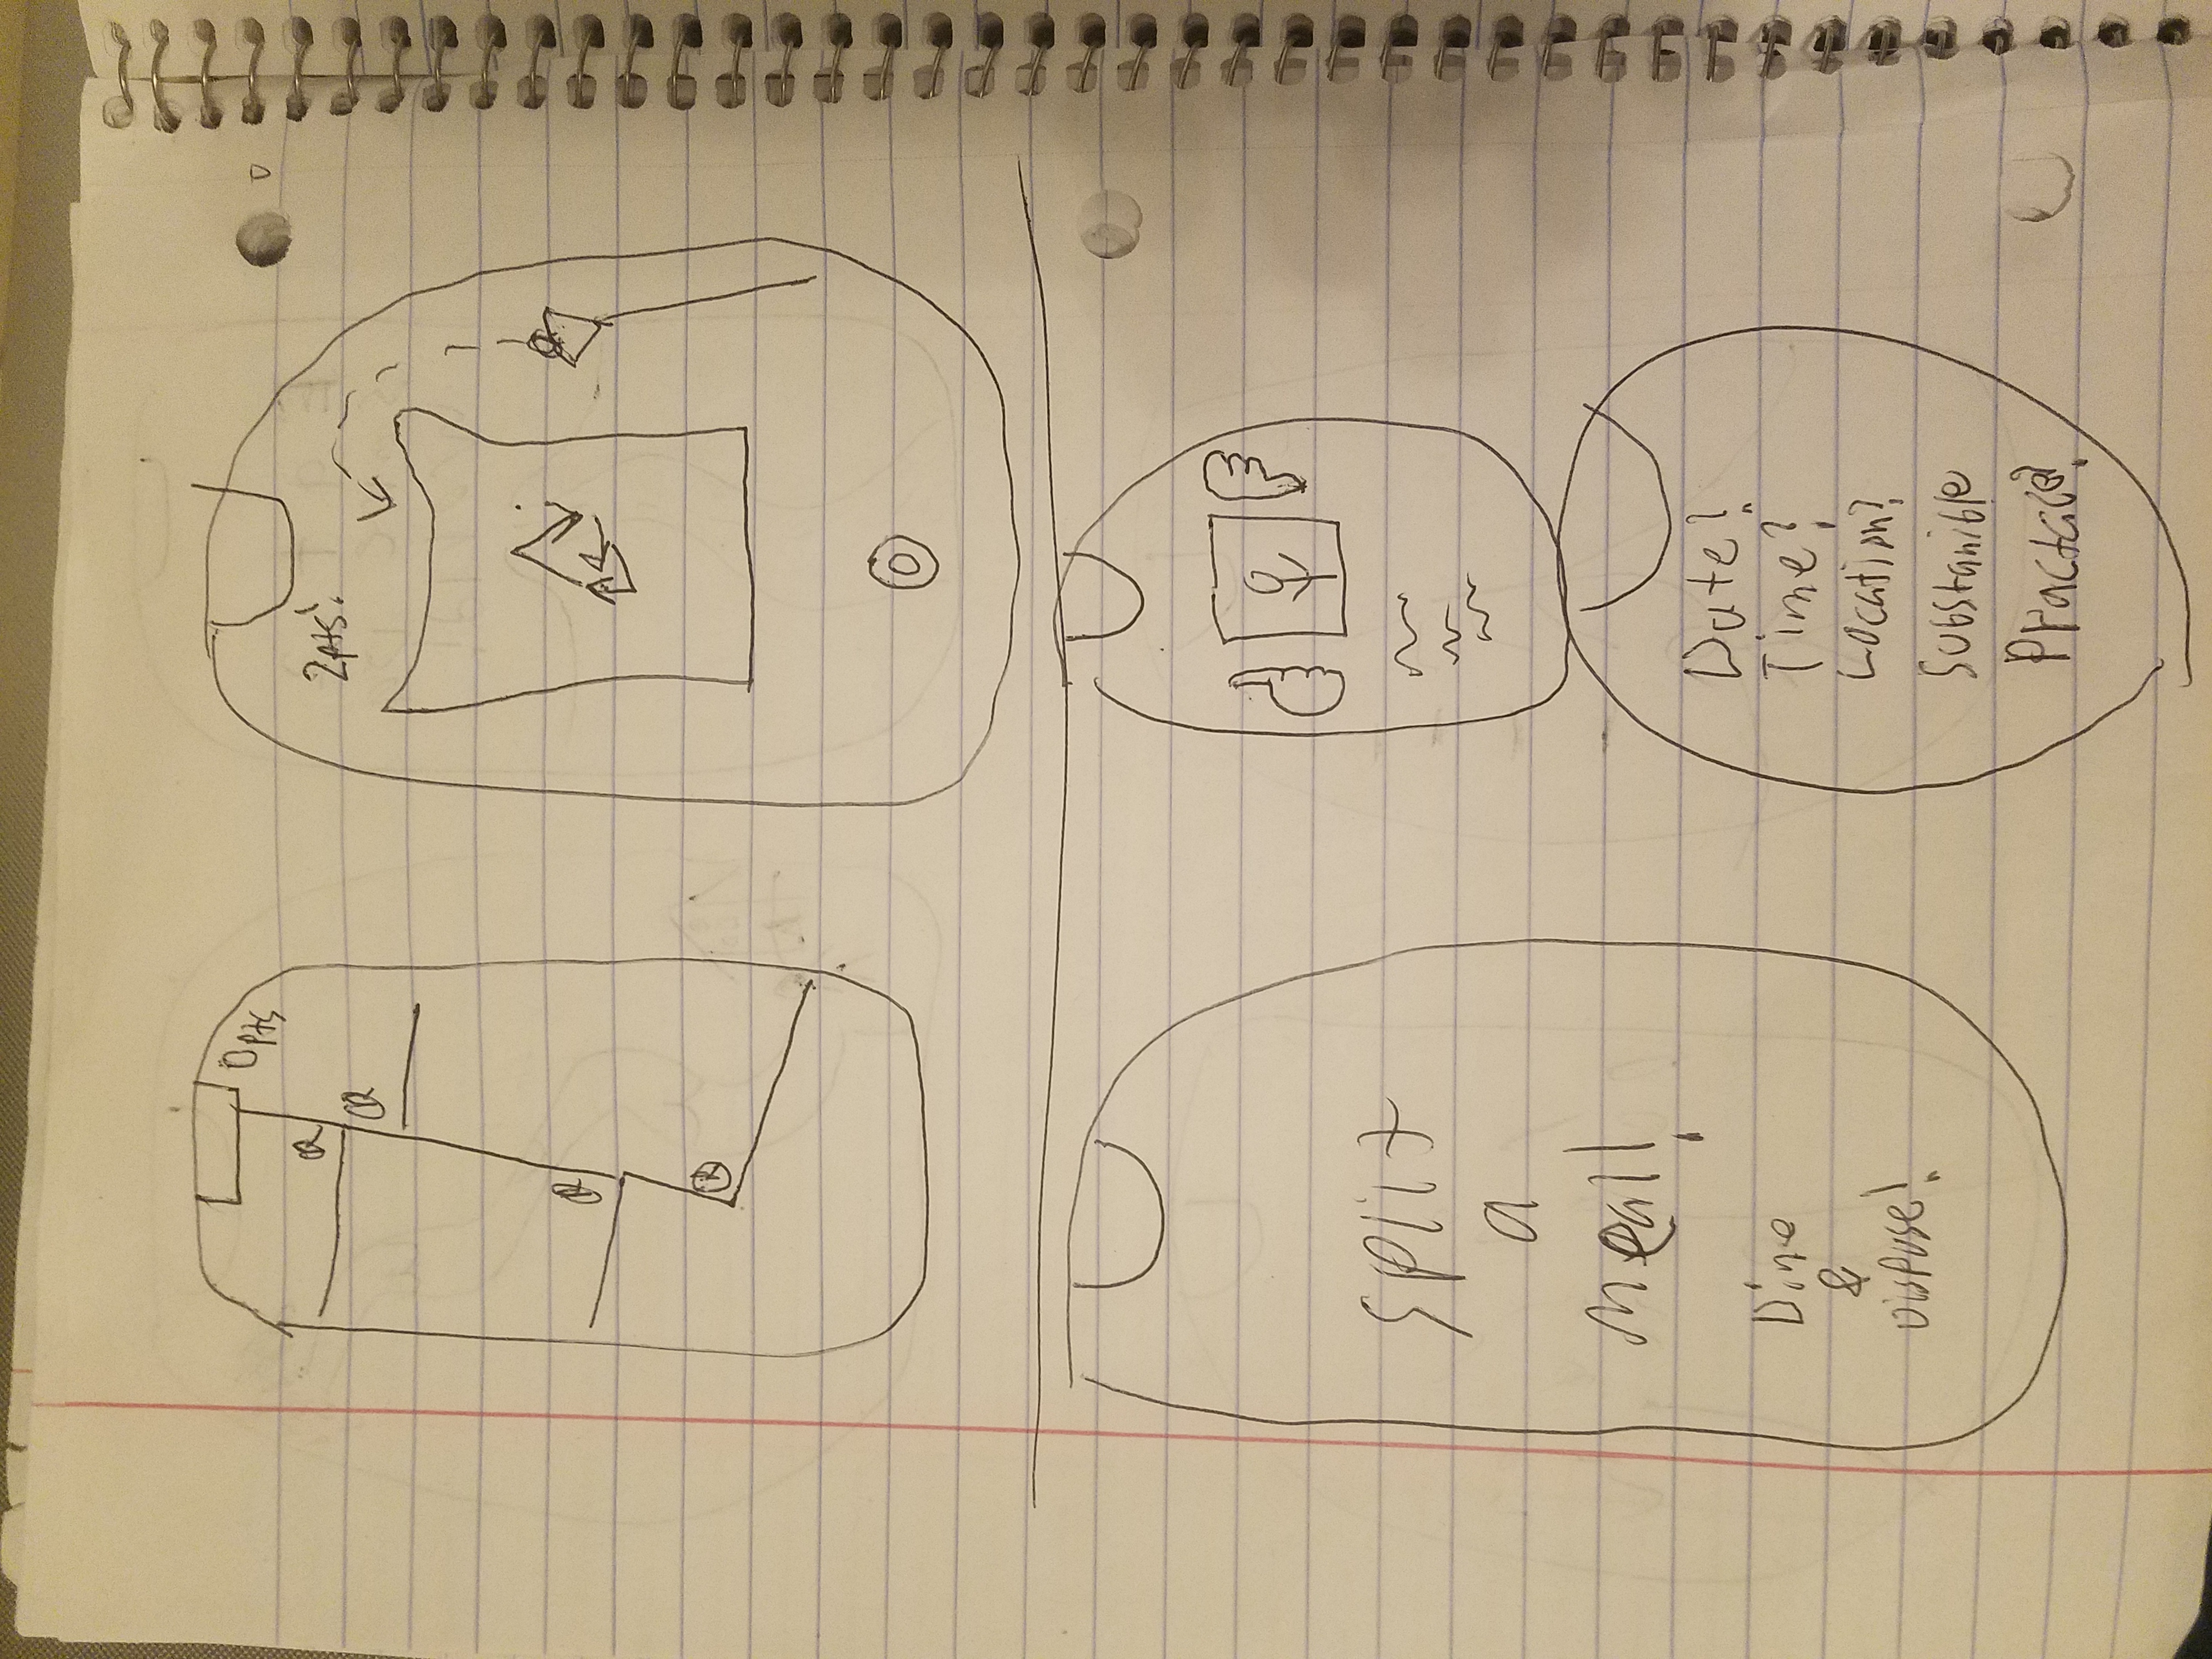 0pts
2pts!
Split
a
Meal!
Dine
&
Dispose!
Date?
Time?
Location?
Substanible
Practice?